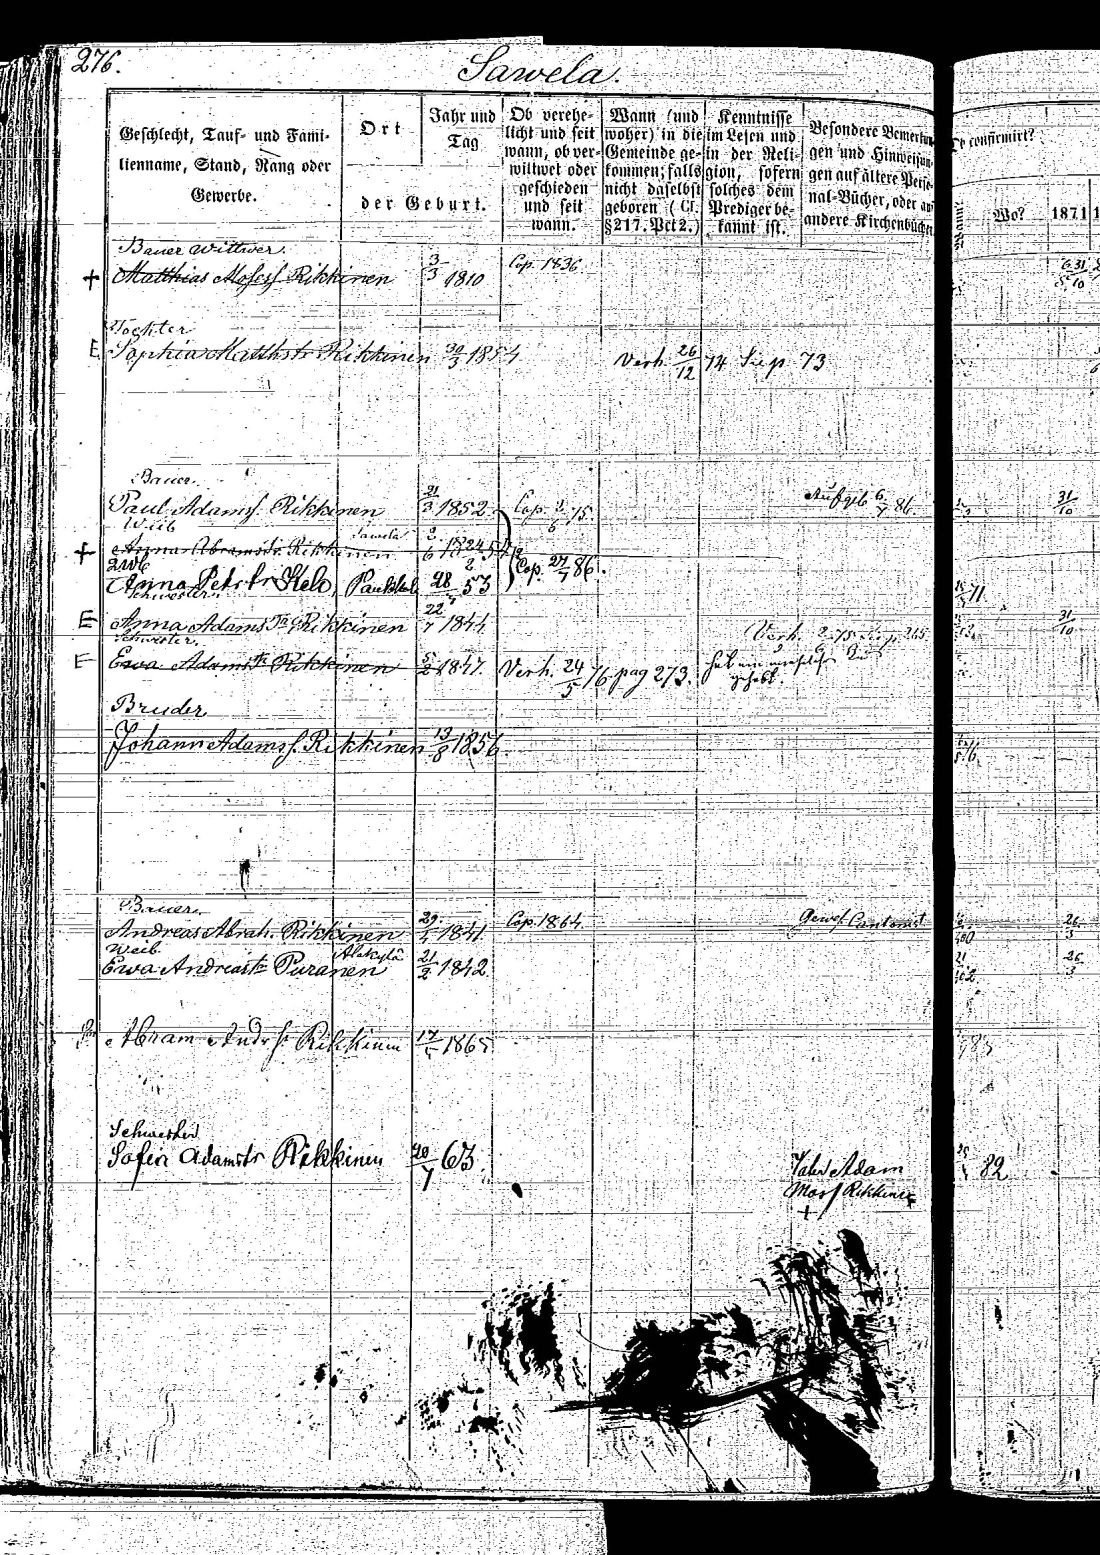 276.
Sawela.
Geschlecht, Tauf- und Fami-
lienname, Stand, Rang oder
Gewerbe.
Ort
Jahr und
Tag
der Geburt.
Ob verehe-
licht und seit
wann, ob ver-
wittwet oder
geschieden
und seit
wann.
Wann (und
woher) in die
Gemeinde ge-
kommen; falls
nicht daselbst
geboren (Cf.
§217. Pct 2.)
Kenntnisse
im Lesen und
in der Reli-
gion, sofern
solches dem
Prediger be-
kannt ist.
Besondere Bemerkun-
gen und Hinweisun-
gen auf ältere Perso-
nal-Bücher, oder an
andere Kirchenbücher
Ob confirmirt?
Wann?
Wo?
1871
Bauer Wittwer.
+ Matthias Mosess. Rikkinen 3/3 1810 Cop. 1836 31/10
Tochter
E Sophia Matthstr Rikkinen 30/3 1854 Verh. 26/12 74 Siep. 73
Bauer.
Paul Adamss. Rikkinen 31/3 1852. Cop. 2/6 75. Aufgeb. 6/7 86. 31/10
Weib Sawela
+ Anna Abramstr. Rikkinen
2 Wb
Anna Petrstr Kelo, 28 53 Cop. 27/7 86. 71
Schwester.
E Anna Adamstr Rikkinen 22/7 1844 Verh. 75 265 31/10
Schwester.
E Ewa Adamstr Rikkinen 5/2 1847. Verh. 24/5 76 pag 273.
gehabt.
Bruder
Johann Adamss. Rikkinen 13/8 1856
Bauer.
Andreas Abrah. Rikkinen 29 1841. Cop. 1864. Gewes. Cantonist 26/3
Weib Alakylä
Ewa Andreastr Puranen 21/2 1842. 26/3
Abram Andrss. Rikkinen 17 1865
Schwester
Sofia Adamstr Rikkinen 20/7 63. Vater Adam 82
Moss Rikkinen
+